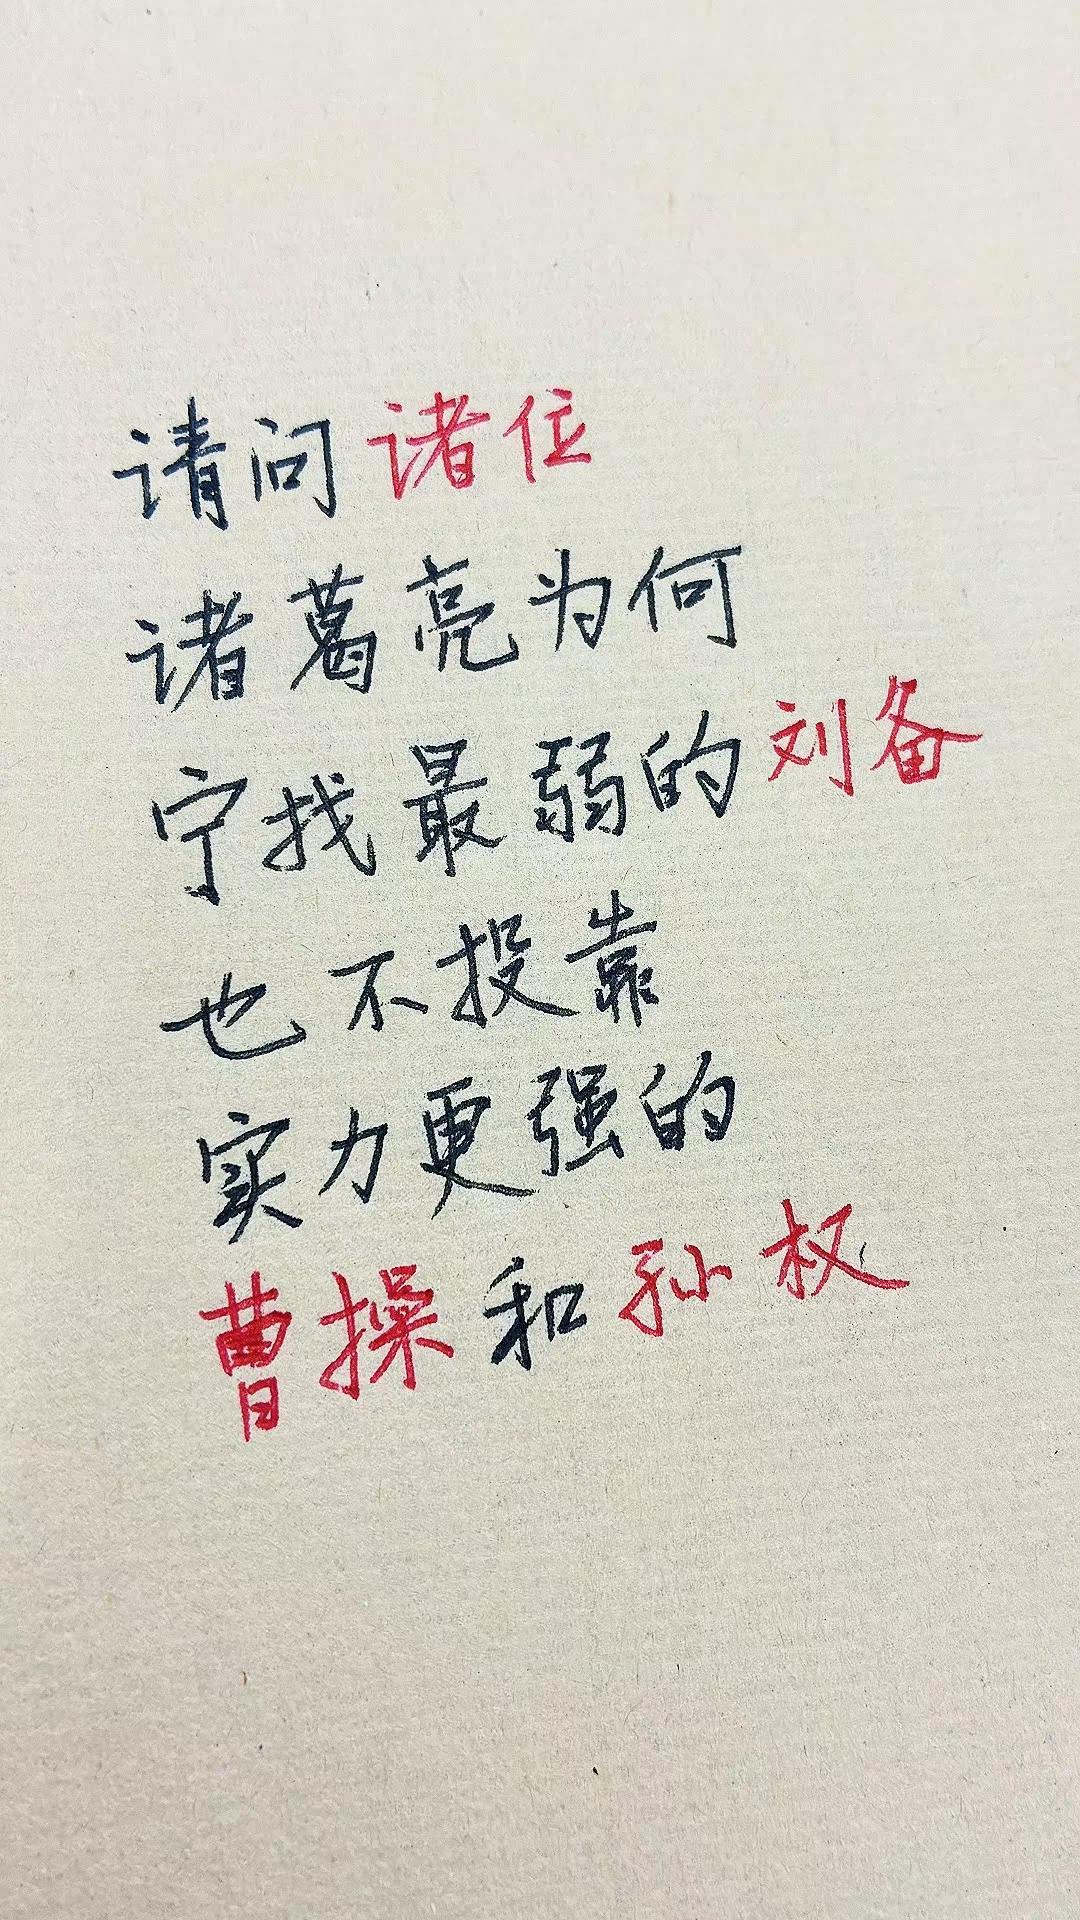 请问诸位
诸葛亮为何
宁找最弱的刘备
也不投靠
实力更强的
曹操和孙权